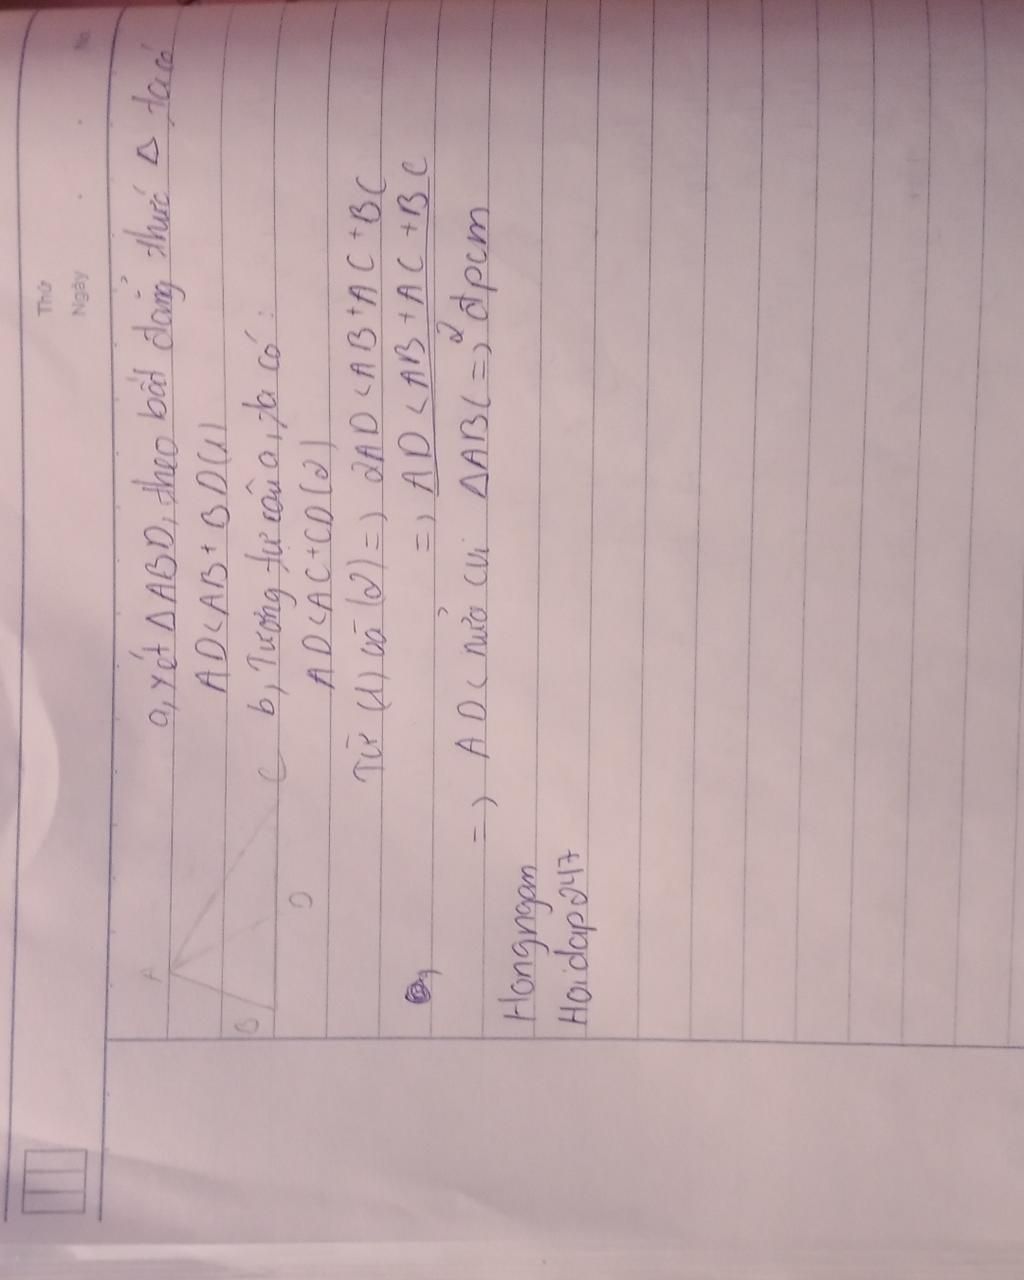 Thứ
Ngày
No.
a, Xét ΔABD, theo bất đẳng thức Δ ta có
AD < AB + BD (1)
b, Tương tự câu a, ta có:
AD < AC + CD (2)
Từ (1) và (2) => 2AD < AB + AC + BC
=> AD < AB + AC + BC
2
=> AD < nửa cvi ΔABC => đpcm
A
B
D
C
Hongngan
Hoidap247